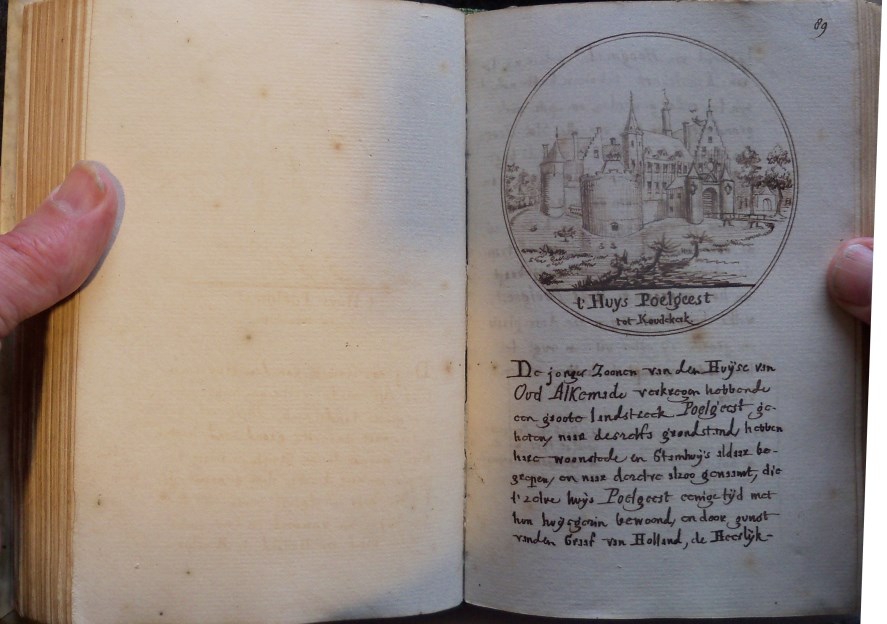 89
t' Huys Poelgeest
tot Koudekerk.
De jonger Zoonen van den Huÿse van
Oud Alkemade verkregen hebbende
een groote landstreek Poelgeest ge-
heten, naar desselfs grondstand, hebben
hare woonstede en Stamhuÿs aldaar be-
grepen, en naar deselve alzoo genaamt, die
t'zelve huÿs Poelgeest eenige tÿd met
hun huÿsgezin bewoond, en door gunst
vanden Graaf van Holland, de Heerlÿk-